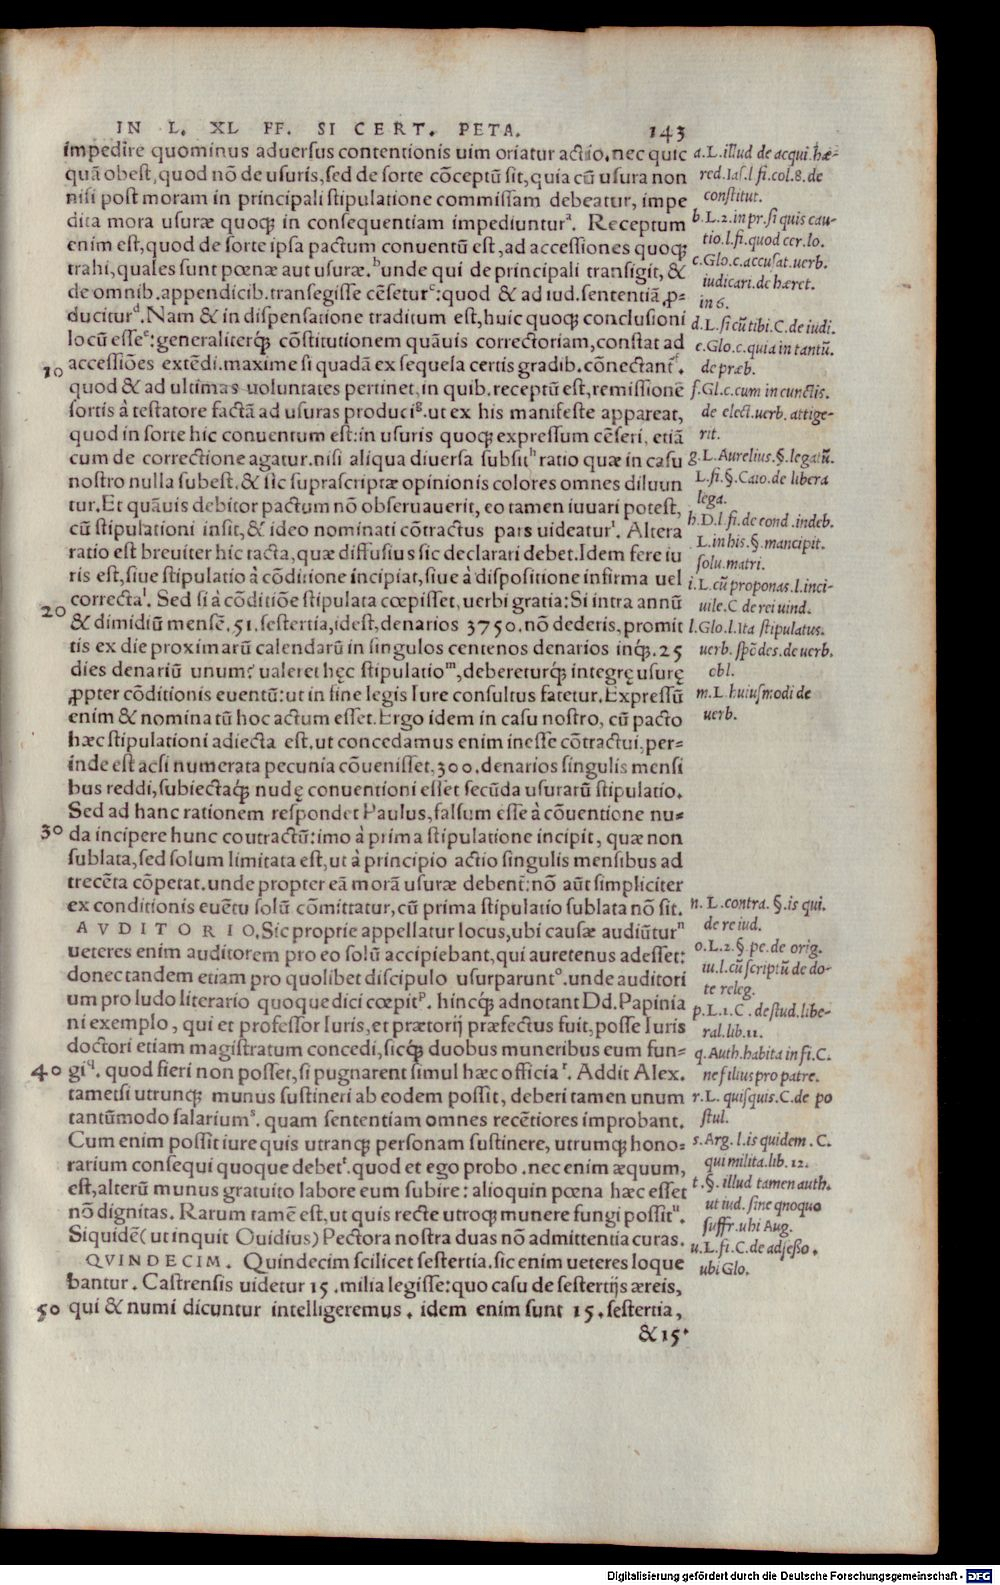 IN L. XL FF. SI CERT. PETA. 143
impedire quominus aduersus contentionis uim oriatur actio, nec quic
quā obest, quod nō de usuris, sed de sorte cōceptū sit, quia cū usura non
nisi post moram in principali stipulatione commissam debeatur, impe
dita mora usuræ quoq; in consequentiam impediuntur<sup>a</sup>. Receptum
enim est, quod de sorte ipsa pactum conuentū est, ad accessiones quoq;
trahi, quales sunt pœnæ aut usuræ.<sup>b</sup> unde qui de principali transigit, &
de omnib. appendicib. transegisse cēsetur<sup>c</sup>: quod & ad iud. sententiā ꝓ=
ducitur<sup>d</sup>. Nam & in dispensatione traditum est, huic quoq; conclusioni
locū esse<sup>e</sup>: generaliterq́; cōstitutionem quāuis correctoriam, constat ad
10 accessiōes extēdi. maxime si quadā ex sequela certis gradib. cōnectant<sup>f</sup>.
quod & ad ultimas uoluntates pertinet, in quib. receptū est, remissionē
sortis à testatore factā ad usuras produci<sup>g</sup>. ut ex his manifeste appareat,
quod in sorte hic conuentum est: in usuris quoq; expressum cēseri, etiā
cum de correctione agatur. nisi aliqua diuersa subsit<sup>h</sup> ratio quæ in casu
nostro nulla subest. & sic suprascriptæ opinionis colores omnes diluun
tur. Et quāuis debitor pactum nō obseruauerit, eo tamen iuuari potest,
cū stipulationi insit, & ideo nominati cōtractus pars uideatur<sup>i</sup>. Altera
ratio est breuiter hic tacta, quæ diffusius sic declarari debet. Idem fere iu
ris est, siue stipulatio à cōditione incipiat, siue à dispositione infirma uel
correcta<sup>l</sup>. Sed si à cōditiōe stipulata cœpisset, uerbi gratia: Si intra annū
20 & dimidiū mensē. 51. sestertia, idest, denarios 3750. nō dederis, promit
tis ex die proximarū calendarū in singulos centenos denarios inq́; 25
dies denariū unum? ualeret hęc stipulatio<sup>m</sup>, debereturq́; integrę usurę
ꝓpter cōditionis euentū: ut in fine legis Iure consultus fatetur. Expressū
enim & nominatū hoc actum esset. Ergo idem in casu nostro, cū pacto
hæc stipulationi adiecta est. ut concedamus enim inesse cōtractui, per=
inde est acsi numerata pecunia cōuenisset, 300. denarios singulis mensi
bus reddi, subiectaq́; nudę conuentioni esset secūda usurarū stipulatio.
Sed ad hanc rationem respondet Paulus, falsum esse à cōuentione nu=
30 da incipere hunc coutractū: imo à prima stipulatione incipit, quæ non
sublata, sed solum limitata est, ut à principio actio singulis mensibus ad
trecēta cōpetat. unde propter eā morā usuræ debent: nō aūt simpliciter
ex conditionis euētu solū cōmittatur, cū prima stipulatio sublata nō sit.
AVDITORIO. Sic proprie appellatur locus, ubi causæ audiūtur<sup>n</sup>
ueteres enim auditorem pro eo solū accipiebant, qui auretenus adesset:
donec tandem etiam pro quolibet discipulo usurparunt<sup>o</sup>. unde auditori
um pro ludo literario quoque dici cœpit<sup>p</sup>. hincq́; adnotant Dd. Papinia
ni exemplo, qui et professor Iuris, et prætorij præfectus fuit, posse Iuris
doctori etiam magistratum concedi, sicq́; duobus muneribus eum fun=
40 gi<sup>q</sup>. quod fieri non posset, si pugnarent simul hæc officia<sup>r</sup>. Addit Alex.
tametsi utrunq; munus sustineri ab eodem possit, deberi tamen unum
tantūmodo salarium<sup>s</sup>. quam sententiam omnes recētiores improbant.
Cum enim possit iure quis utranq; personam sustinere, utrumq; hono=
rarium consequi quoque debet<sup>t</sup>. quod et ego probo. nec enim æquum,
est, alterū munus gratuito labore eum subire: alioquin pœna hæc esset
nō dignitas. Rarum tamē est, ut quis recte utroq; munere fungi possit<sup>u</sup>.
Siquidē (ut inquit Ouidius) Pectora nostra duas nō admittentia curas.
QVINDECIM. Quindecim scilicet sestertia. sic enim ueteres loque
bantur. Castrensis uidetur 15. milia legisse: quo casu de sestertijs æreis,
50 qui & numi dicuntur intelligeremus. idem enim sunt 15. sestertia,
& 15.
a. L. illud de acqui. hæ-
red. Ias. l. fi. col. 8. de
constitut.
b. L. 2. in pr. si quis cau-
tio. l. fi. quod cer. lo.
c. Glo. c. accusat. uerb.
iudicari. de hæret.
in 6.
d. L. si cū tibi. C. de iudi.
e. Glo. c. quia in tantū.
de præb.
f. Gl. c. cum in cunctis.
de elect. uerb. attige-
rit.
g. L. Aurelius. §. legatū.
L. fi. §. Caio. de libera
lega.
h. D. l. fi. de cond. indeb.
L. in his. §. mancipit.
solu. matri.
i. L. cū proponas. l. inci-
uile. C de rei uind.
l. Glo. l. Ita stipulatus.
uerb. spōdes. de uerb.
obl.
m. L. huiusmodi de
uerb.
n. L. contra. §. is qui.
de re iud.
o. L. 2. §. pe. de orig.
iu. l. cū scriptū de do-
te releg.
p. L. 1. C. de stud. libe-
ral. lib. 11.
q. Auth. habita in fi. C.
ne filius pro patre.
r. L. quisquis. C. de po
stul.
s. Arg. l. is quidem. C.
qui milita. lib. 12.
t. §. illud tamen auth.
ut iud. sine qnoquo
suffr. ubi Aug.
u. L. fi. C. de adsesso.
ubi Glo.
Digitalisierung gefördert durch die Deutsche Forschungsgemeinschaft - DFG